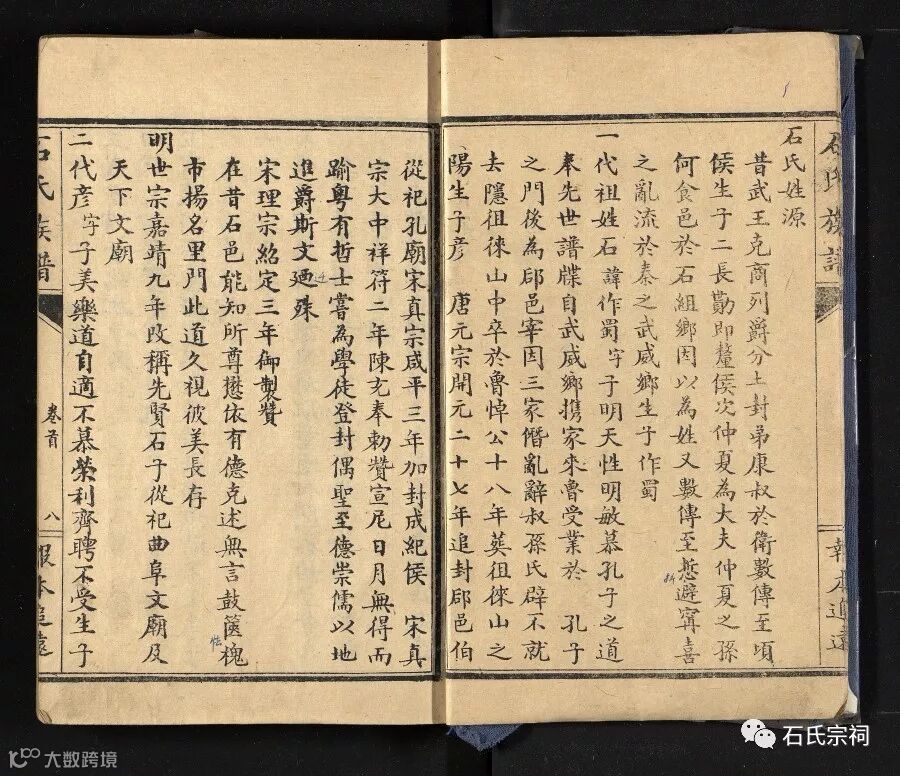 石氏姓源
昔武王克商列爵分土封弟康叔於衛數傳至頃
侯生子二長勩即釐侯次仲夏為大夫仲夏之孫
何食邑於石組鄉因以為姓又數傳至惄避甯喜
之亂流於秦之武威鄉生子作蜀
一代祖姓石諱作蜀字子明天性明敏慕孔子之道
奉先世譜牒自武威鄉携家來魯受業於 孔子
之門後為郈邑宰因三家僭亂辭叔孫氏辟不就
去隱徂徠山中卒於魯悼公十八年葬徂徠山之
陽生子彥 唐元宗開元二十七年追封郈邑伯
從祀孔廟宋真宗咸平三年加封成紀侯 宋真
宗大中祥符二年陳充奉勅贊宣尼日月無得而
踰粤有哲士嘗為學徒登封偶聖至德崇儒以地
進爵斯文廼殊
宋理宗紹定三年御製贊
在昔石邑能知所尊懋依有德克述無言鼓篋槐
市揚名里門此道久視彼美長存
明世宗嘉靖九年改稱先賢石子從祀曲阜文廟及
天下文廟
二代彥字子美樂道自適不慕榮利齊聘不受生子
石氏族譜
卷首
八
報本追遠
石氏宗祠
大数跨境